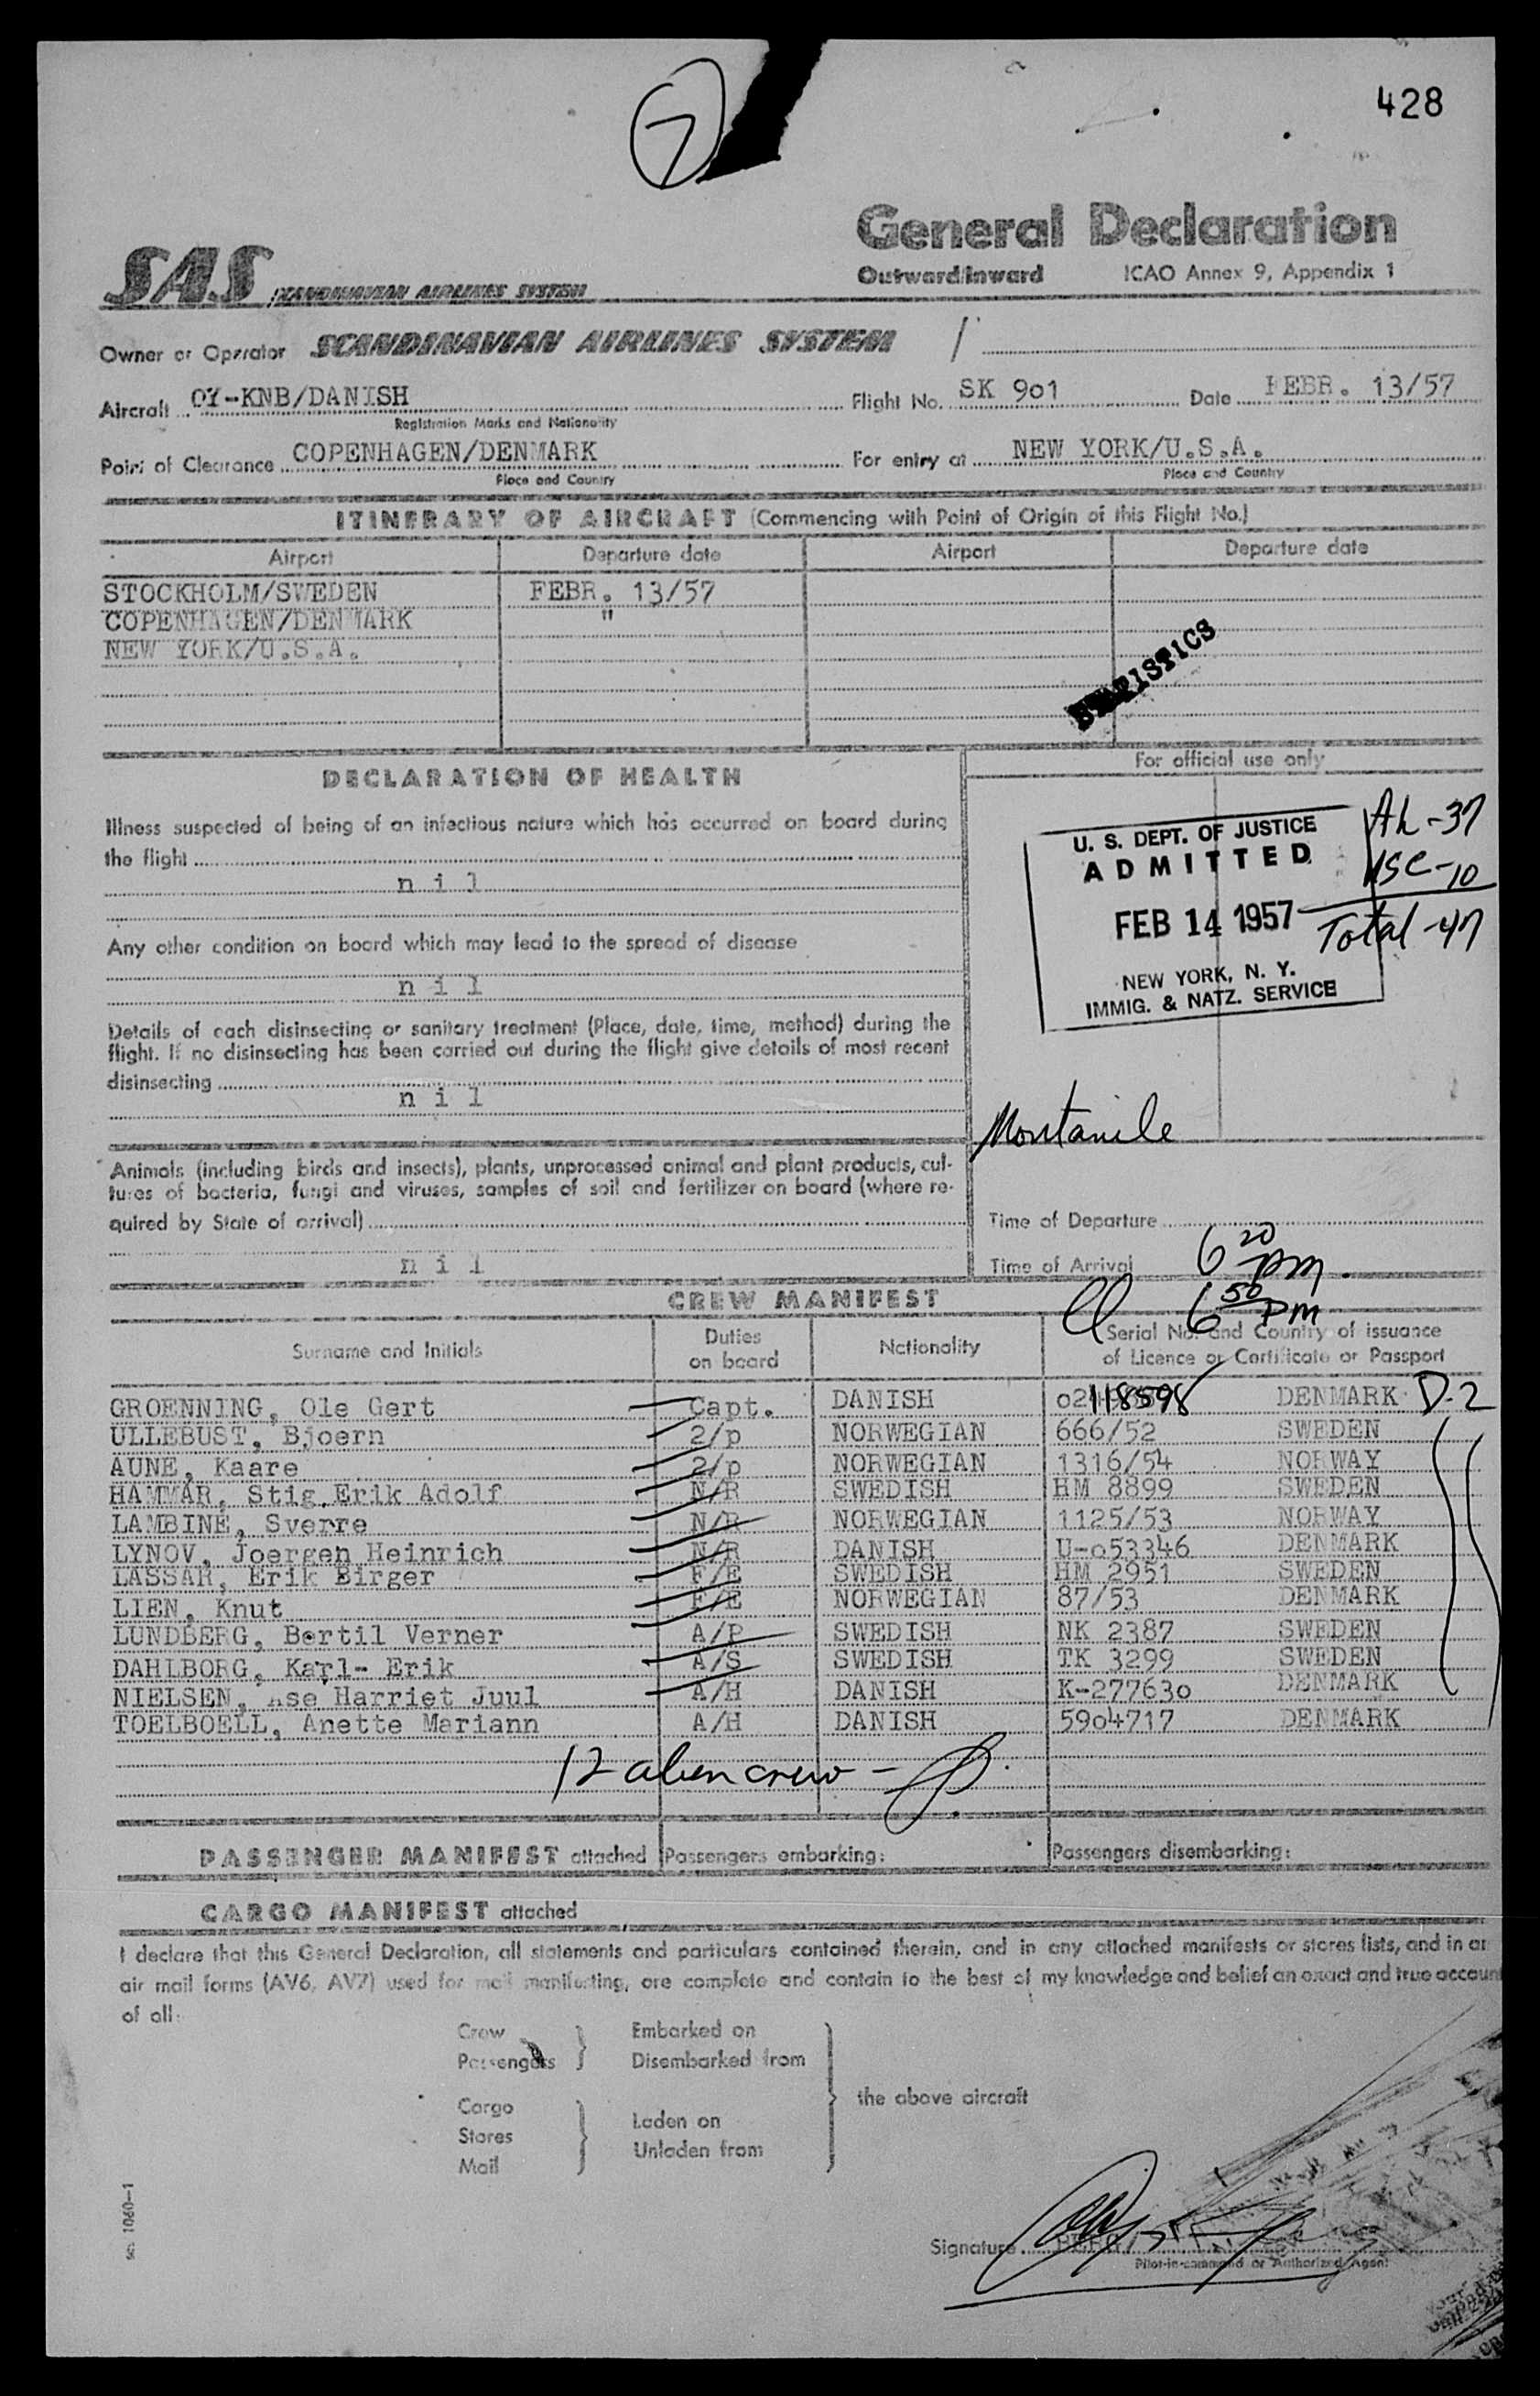 7
428
General Declaration
Outward/Inward ICAO Annex 9, Appendix 1
SAS SCANDINAVIAN AIRLINES SYSTEM
Owner or Operator SCANDINAVIAN AIRLINES SYSTEM /
Aircraft OY-KNB/DANISH Flight No. SK 9o1 Date FEBR. 13/57
Registration Marks and Nationality
Point of Clearance COPENHAGEN/DENMARK For entry at NEW YORK/U.S.A.
Place and Country Place and Country
ITINERARY OF AIRCRAFT (Commencing with Point of Origin of this Flight No.)
Airport Departure date Airport Departure date
STOCKHOLM/SWEDEN FEBR. 13/57
COPENHAGEN/DENMARK "
NEW YORK/U.S.A.
STATISTICS
DECLARATION OF HEALTH
For official use only
Illness suspected of being of an infectious nature which has occurred on board during
the flight
n i l
Any other condition on board which may lead to the spread of disease
n i l
Details of each disinsecting or sanitary treatment (Place, date, time, method) during the
flight. If no disinsecting has been carried out during the flight give details of most recent
disinsecting
n i l
U. S. DEPT. OF JUSTICE
ADMITTED
FEB 14 1957
NEW YORK, N. Y.
IMMIG. & NATZ. SERVICE
AL-37
USC-10
Total-47
Montanile
Animals (including birds and insects), plants, unprocessed animal and plant products, cul-
tures of bacteria, fungi and viruses, samples of soil and fertilizer on board (where re-
quired by State of arrival)
n i l
Time of Departure
Time of Arrival 6 20 pm.
6 50 pm
CREW MANIFEST
Surname and Initials Duties on board Nationality Serial No. and Country of issuance
of Licence or Certificate or Passport
GROENNING, Ole Gert Capt. DANISH 118598 DENMARK D-2
ULLEBUST, Bjoern 2/p NORWEGIAN 666/52 SWEDEN
AUNE, Kaare 2/p NORWEGIAN 1316/54 NORWAY
HAMMAR, Stig Erik Adolf N/R SWEDISH HM 8899 SWEDEN
LAMBINE, Sverre N/R NORWEGIAN 1125/53 NORWAY
LYNOV, Joergen Heinrich N/R DANISH U-o53346 DENMARK
LASSAR, Erik Birger F/E SWEDISH HM 2951 SWEDEN
LIEN, Knut F/E NORWEGIAN 87/53 DENMARK
LUNDBERG, Bertil Verner A/P SWEDISH NK 2387 SWEDEN
DAHLBORG, Karl- Erik A/S SWEDISH TK 3299 SWEDEN
NIELSEN, Ase Harriet Juul A/H DANISH K-27763o DENMARK
TOELBOELL, Anette Mariann A/H DANISH 59o4717 DENMARK
12 alien crew -
PASSENGER MANIFEST attached Passengers embarking: Passengers disembarking:
CARGO MANIFEST attached
I declare that this General Declaration, all statements and particulars contained therein, and in any attached manifests or stores lists, and in
air mail forms (AV6, AV7) used for mail manifesting, are complete and contain to the best of my knowledge and belief an exact and true account
of all:
Crew Embarked on
Passengers Disembarked from
the above aircraft
Cargo Laden on
Stores Unladen from
Mail
1060-1
Signature
Pilot-in-command or Authorized Agent